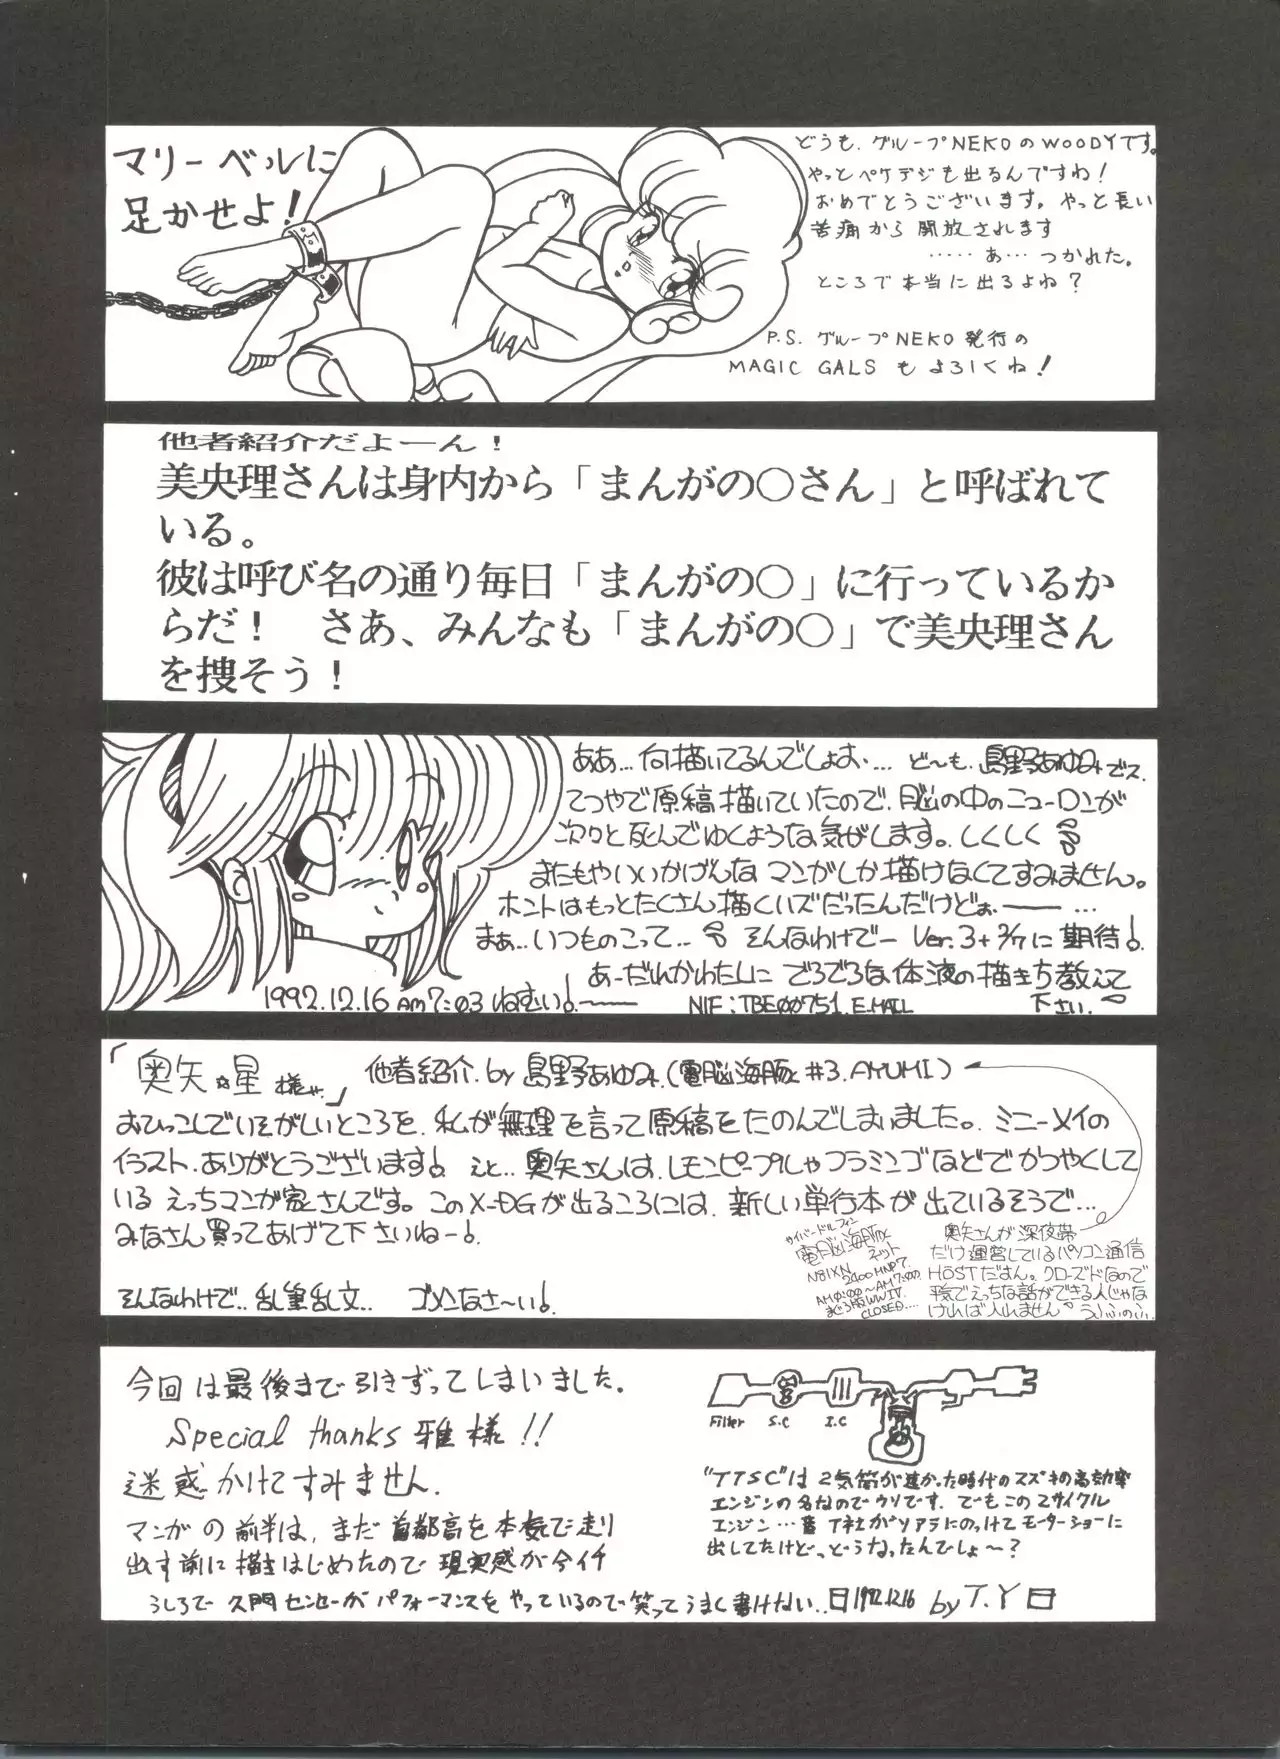 マリーベルに
足かせよ！
どうも、グループNEKOのWOODYです。
やっとペケデジも出るんですね！
おめでとうございます。やっと長い
苦痛から開放されます
‥‥‥あ…つかれた。
ところで本当に出るよね？
P.S. グループNEKO発行の
MAGIC GALSもよろしくね！
他者紹介だよーん！
美央理さんは身内から「まんがの〇さん」と呼ばれて
いる。
彼は呼び名の通り毎日「まんがの〇」に行っているか
らだ！　さあ、みんなも「まんがの〇」で美央理さん
を捜そう！
ああ…何描いてるんでしょお、… ど〜も、島野あゆみでス、
てつやで原稿描いていたので、脳の中のニューロンが
次々と死んでゆくような気がします。しくしく
またもやいいかげんなマンガしか描けなくてすみません。
ホントはもっとたくさん描くハズだったんだけどぉ――…
まぁ…いつものこって… そんなわけでー Ver.3+2/7に期待！
あーだれかわたしにでろでろな体液の描き方教えて
下さい。
1992.12.16 AM7:03 ねむい！――
NIF:TBE00751.E-MAIL
「奥矢☆星様」 他者紹介.by島野あゆみ.(電脳海豚#3.AYUMI)
おひっこしでいそがしいところを、私が無理を言って原稿をたのんでしまいました。ミニーメイの
イラスト、ありがとうございます！ えと…奥矢さんは、レモンピープルしゃフラミンゴなどでかつやくして
いるえっちマンガ家さんです。このX-DGが出るころには、新しい単行本が出ているそうで…
みなさん買ってあげて下さいねー！
そんなわけで…乱筆乱文、ゴメンなさ〜い！
サイバードルフィン
電脳海豚
ネット
N81XN
2400MNP7.
AM0:00〜AM7:00.
まぐろ版WWIV
CLOSED....
奥矢さんが深夜帯
だけ運営しているパソコン通信
HOSTだす。クローズドなので
平気でえっちな話ができる人じゃな
ければ入れません うふふのふ
今回は最後まで引きずってしまいました。
Special thanks 雅様!!
迷惑かけてすみません。
マンガの前半は、まだ首都高を本気で走り
出す前に描きはじめたので現実感が今イチ
うしろで久門センセーがパフォーマンスをやっているので笑ってうまく書けない‥
1992.12.16 by T.Y
Filter S.C I.C
"TTSC"は2気筒が速かった時代のスズキの高効率
エンジンの名なのでウソです。でもこの2サイクル
エンジン…昔T社がソアラにのっけてモーターショーに
出してたけど、どうなったんでしょ〜？